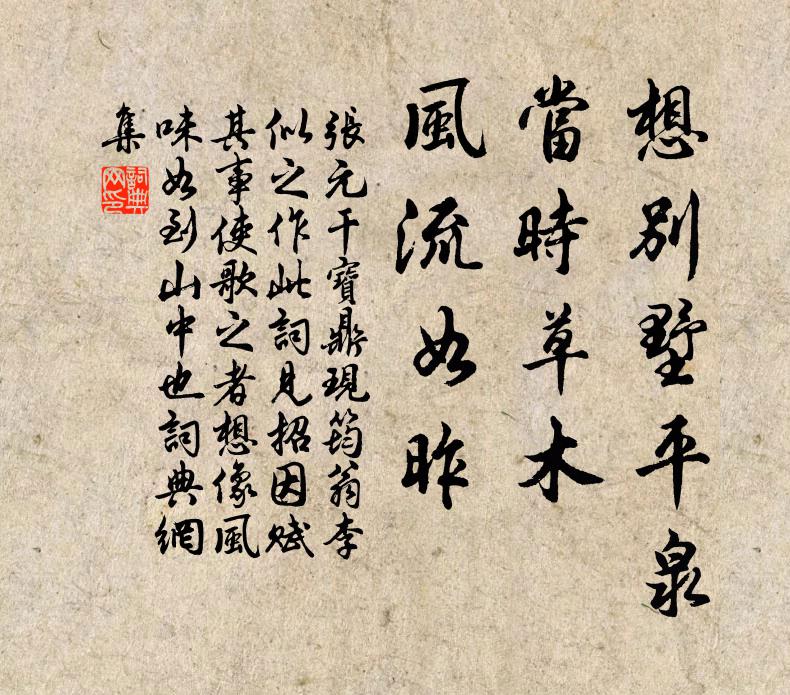 想別墅平泉
當時草木
風流如昨
張元干寶鼎現筠翁李
似之作此詞見招因賦
其事使歌之者想像風
味如到山中也詞典網
集
詞典
网印